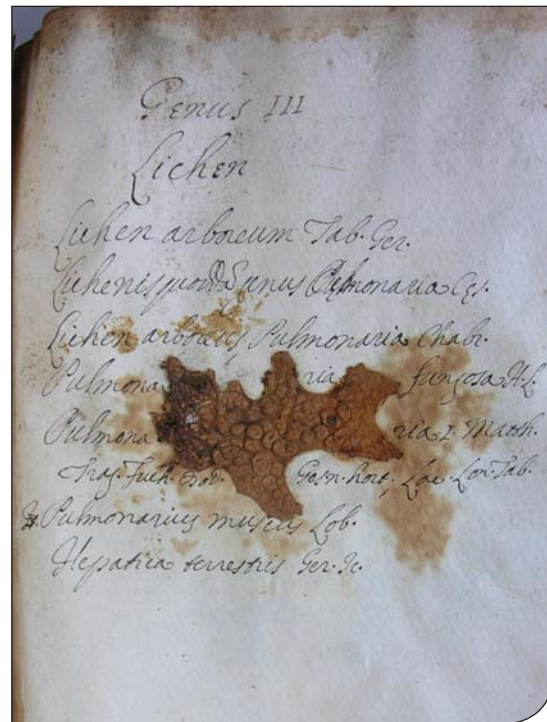 Genus III
Lichen
Lichen arboreum Tab. Ger.
Lichenis quoddam genus Pulmonaria Cęs.
Lichen arboreus Pulmonaria Chabr.
Pulmona ria fungosa H.L.
Pulmona ria I. Matth.
Trag. Fuch. Dod. Gesn. hort, Lac. Lon. Tab.
Pulmonarius muscus Lob.
Hepatica terrestris Ger. Ic.